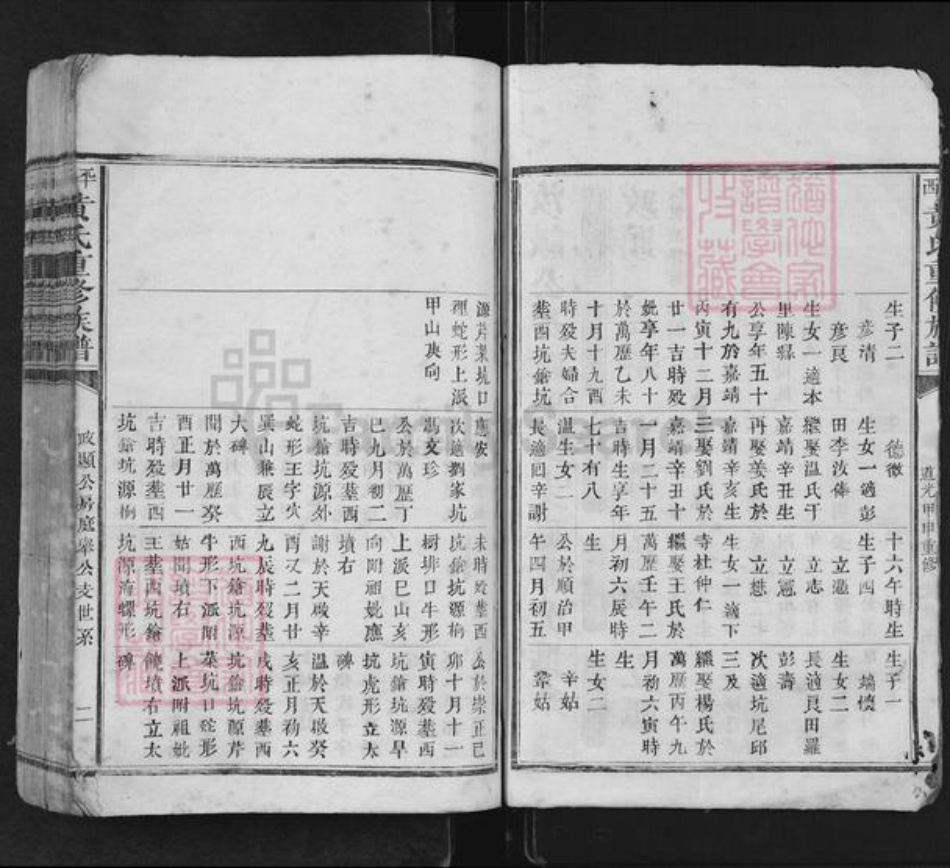 西 黄氏重修族譜
道光甲申重修
生子二
彦清
彦良
生女一適本
里陳縣
公享年五十
有九於嘉靖
丙寅十二月
廿一吉時歿
妣享年八十
於萬歷乙未
十月十九酉
時歿夫婦合
塟西坑鎗坑
德微
生女一適彭
田李汝俸
繼娶温氏于
嘉靖辛丑生
再娶姜氏於
嘉靖辛亥生
三娶劉氏於
嘉靖辛丑十
一月二十五
吉時生享年
七十有八
温生女二
長適回辛謝
十六午時生
生子四
立懣
立志
立憲
立懋
生女一適下
寺杜仲仁
繼娶王氏於
萬歷壬午二
月初六辰時
生
公於順治甲
午四月初五
生子一
端懷
生女二
長適良田羅
彭壽
次適坑尾邱
三及
繼娶楊氏於
萬歷丙午九
月初六寅時
生
生女二
辛姑
鞏姑
源芹菜坑口
狸蛇形上派
甲山庚向
應安
次適劉家坑
馮文珍
公於萬歷丁
巳九月初二
吉時歿塟西
坑鎗坑源外
蛇形王字穴
巽山兼辰立
大碑
閙於萬歷癸
酉正月廿一
吉時歿塟西
坑鎗坑源栒
未時歿塟西
坑鎗坑源栒
樹排口牛形
上派巳山亥
向附祖妣應
墳右
謝於天啟辛
酉又二月廿
九辰時歿塟
西坑鎗坑源
牛形下派附
姑閙墳右
王塟西坑鎗
坑源海螺形
公於崇正己
卯十月十一
寅時歿塟西
坑鎗坑源早
坑虎形立太
碑
温於天啟癸
亥正月初六
戌時歿塟西
坑鎗坑源芹
菜坑口蛇形
上派附祖妣
饒墳右立太
碑
平 黄氏重修族譜
政顯公房庭舉公支世系 二